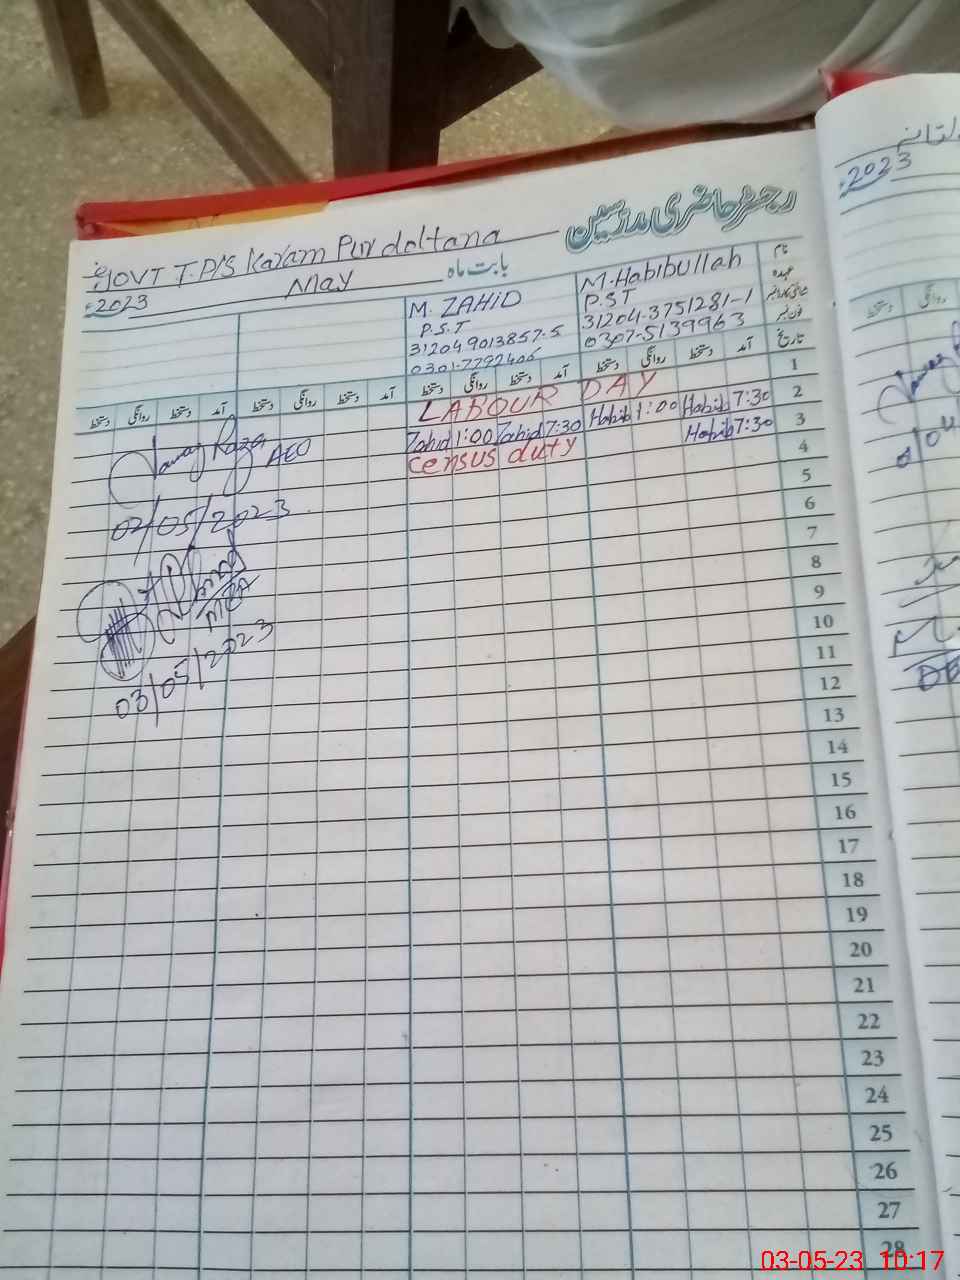 رجسٹر حاضری مدرسین
GOVT T.P/S Karam Pur daltana
بابت ماہ May 2023
نام
عہدہ
شناختی کارڈ نمبر
فون نمبر
M. Habibullah
P.ST
31204-3751281-1
0307-5139963
M. ZAHiD
P.S.T
312049013857-5
0301-7792406
تاریخ آمد دستخط روانگی دستخط آمد دستخط روانگی دستخط آمد دستخط روانگی دستخط آمد دستخط روانگی دستخط
1 LABOUR DAY
2 7:30 Habib 1:00 Habib 7:30 Zahid 1:00 Zahid
3 7:30 Habib Census duty
4
5
6
7
8
9
10
11
12
13
14
15
16
17
18
19
20
21
22
23
24
25
26
27
28
AEO
02/05/2023
MEA
03/05/2023
2023
دستخط روانگی
03-05-23 10:17